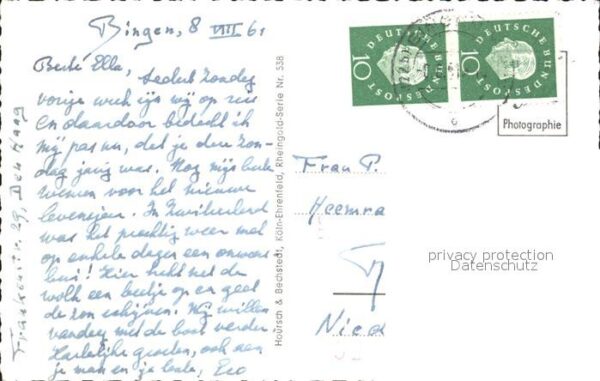 Bingen, 8 VIII 61
Beste Ella,
Sedert Zondag
vorige week zijn wij op reis
en daardoor bedacht ik
mij pas nu, dat je deze Zon-
dag jarig was. Nog mijn beste
wensen voor het nieuwe
levensjaar. In Zwitserland
was het prachtig weer met
op enkele dagen een onweers
bui! Hier hebt met de
wolk een beetje op en gaat
de zon schijnen. Wij willen
vandaag met de boot verder.
Hartelijke groeten, ook aan
je man en je
29, Den Haag
Hoursch & Bechstedt, Köln-Ehrenfeld, Rheingold-Serie Nr. 538
10
DEUTSCHE BUNDESPOST
10
DEUTSCHE BUNDESPOST
Photographie
Frau P.
Heemra
privacy protection
Datenschutz